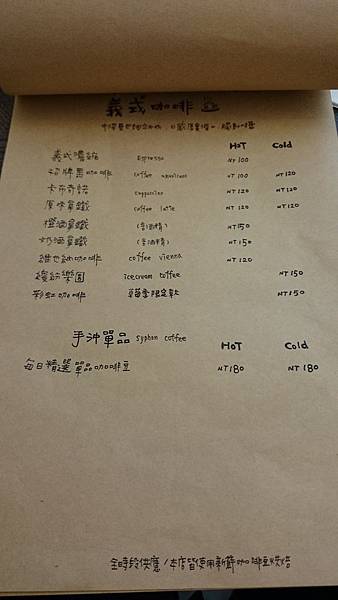 義式咖啡
HOT Cold
義式濃縮 Espresso NT 100
招牌黑咖啡 coffee americano NT 100 NT 120
卡布奇諾 cappuccino NT 120 NT 120
原味拿鐵 coffee latte NT 120 NT 120
橙酒拿鐵 (含酒精) NT 150
奶酒拿鐵 (含酒精) NT 150
維也納咖啡 coffee vienna NT 120
繽紛樂園 icecream coffee NT 150
彩虹咖啡 草莓季限定款 NT 150
手沖單品 syphon coffee HOT Cold
每日精選單品咖啡豆 NT 180 NT 180
全時段供應/本店皆使用新鮮咖啡豆烘焙